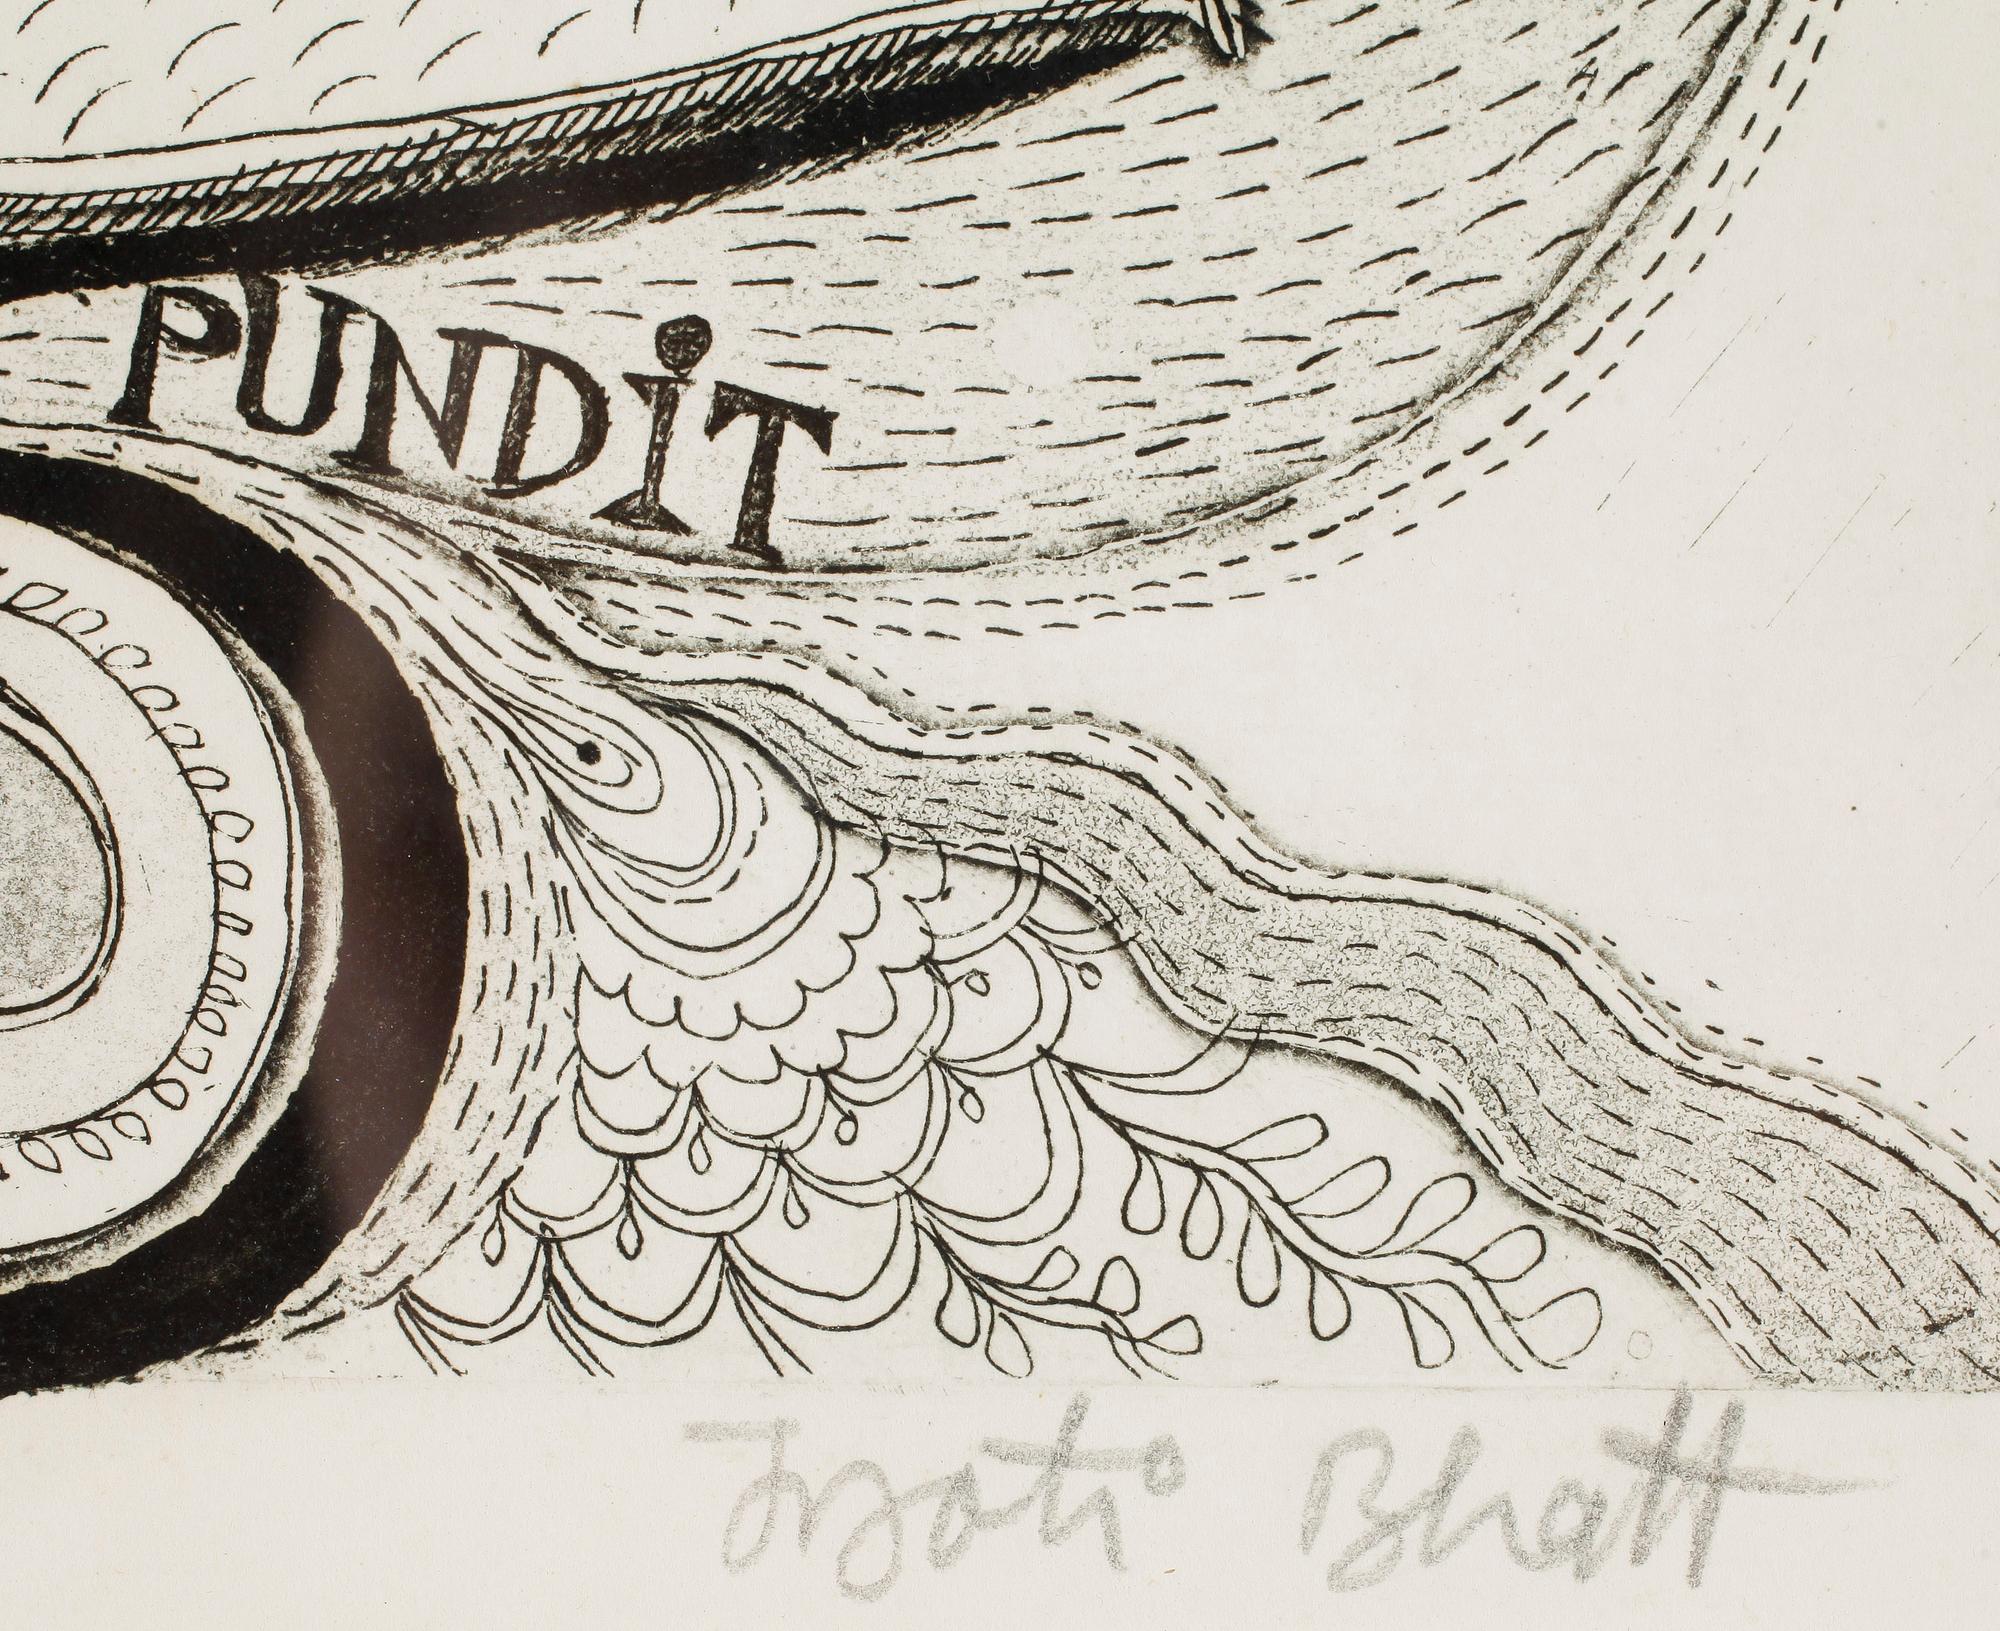 PUNDiT
Jyoti Bhatt